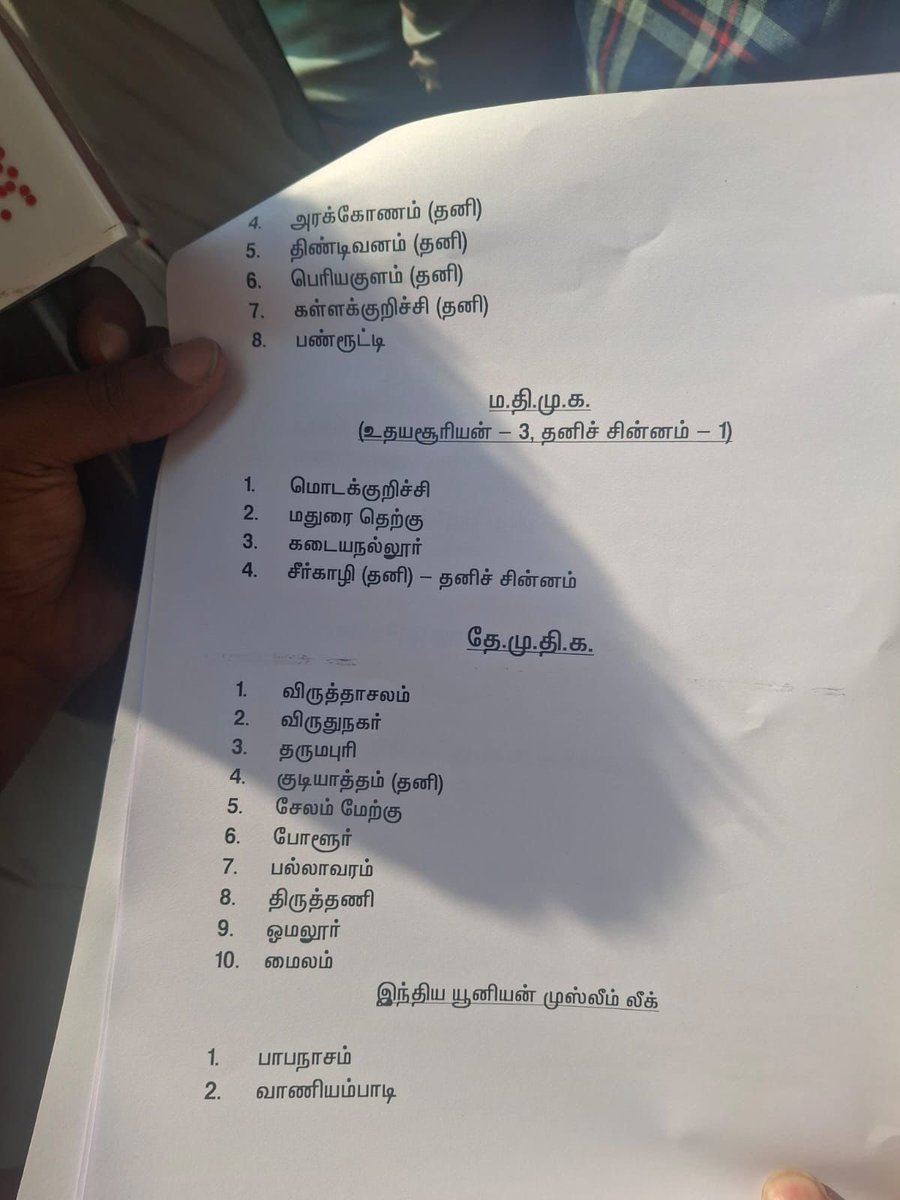 4. அரக்கோணம் (தனி)
5. திண்டிவனம் (தனி)
6. பெரியகுளம் (தனி)
7. கள்ளக்குறிச்சி (தனி)
8. பண்ருட்டி
ம.தி.மு.க.
(உதயசூரியன் – 3, தனிச் சின்னம் – 1)
1. மொடக்குறிச்சி
2. மதுரை தெற்கு
3. கடையநல்லூர்
4. சீர்காழி (தனி) – தனிச் சின்னம்
தே.மு.தி.க.
1. விருத்தாசலம்
2. விருதுநகர்
3. தருமபுரி
4. குடியாத்தம் (தனி)
5. சேலம் மேற்கு
6. போளூர்
7. பல்லாவரம்
8. திருத்தணி
9. ஓமலூர்
10. மைலம்
இந்திய யூனியன் முஸ்லீம் லீக்
1. பாபநாசம்
2. வாணியம்பாடி